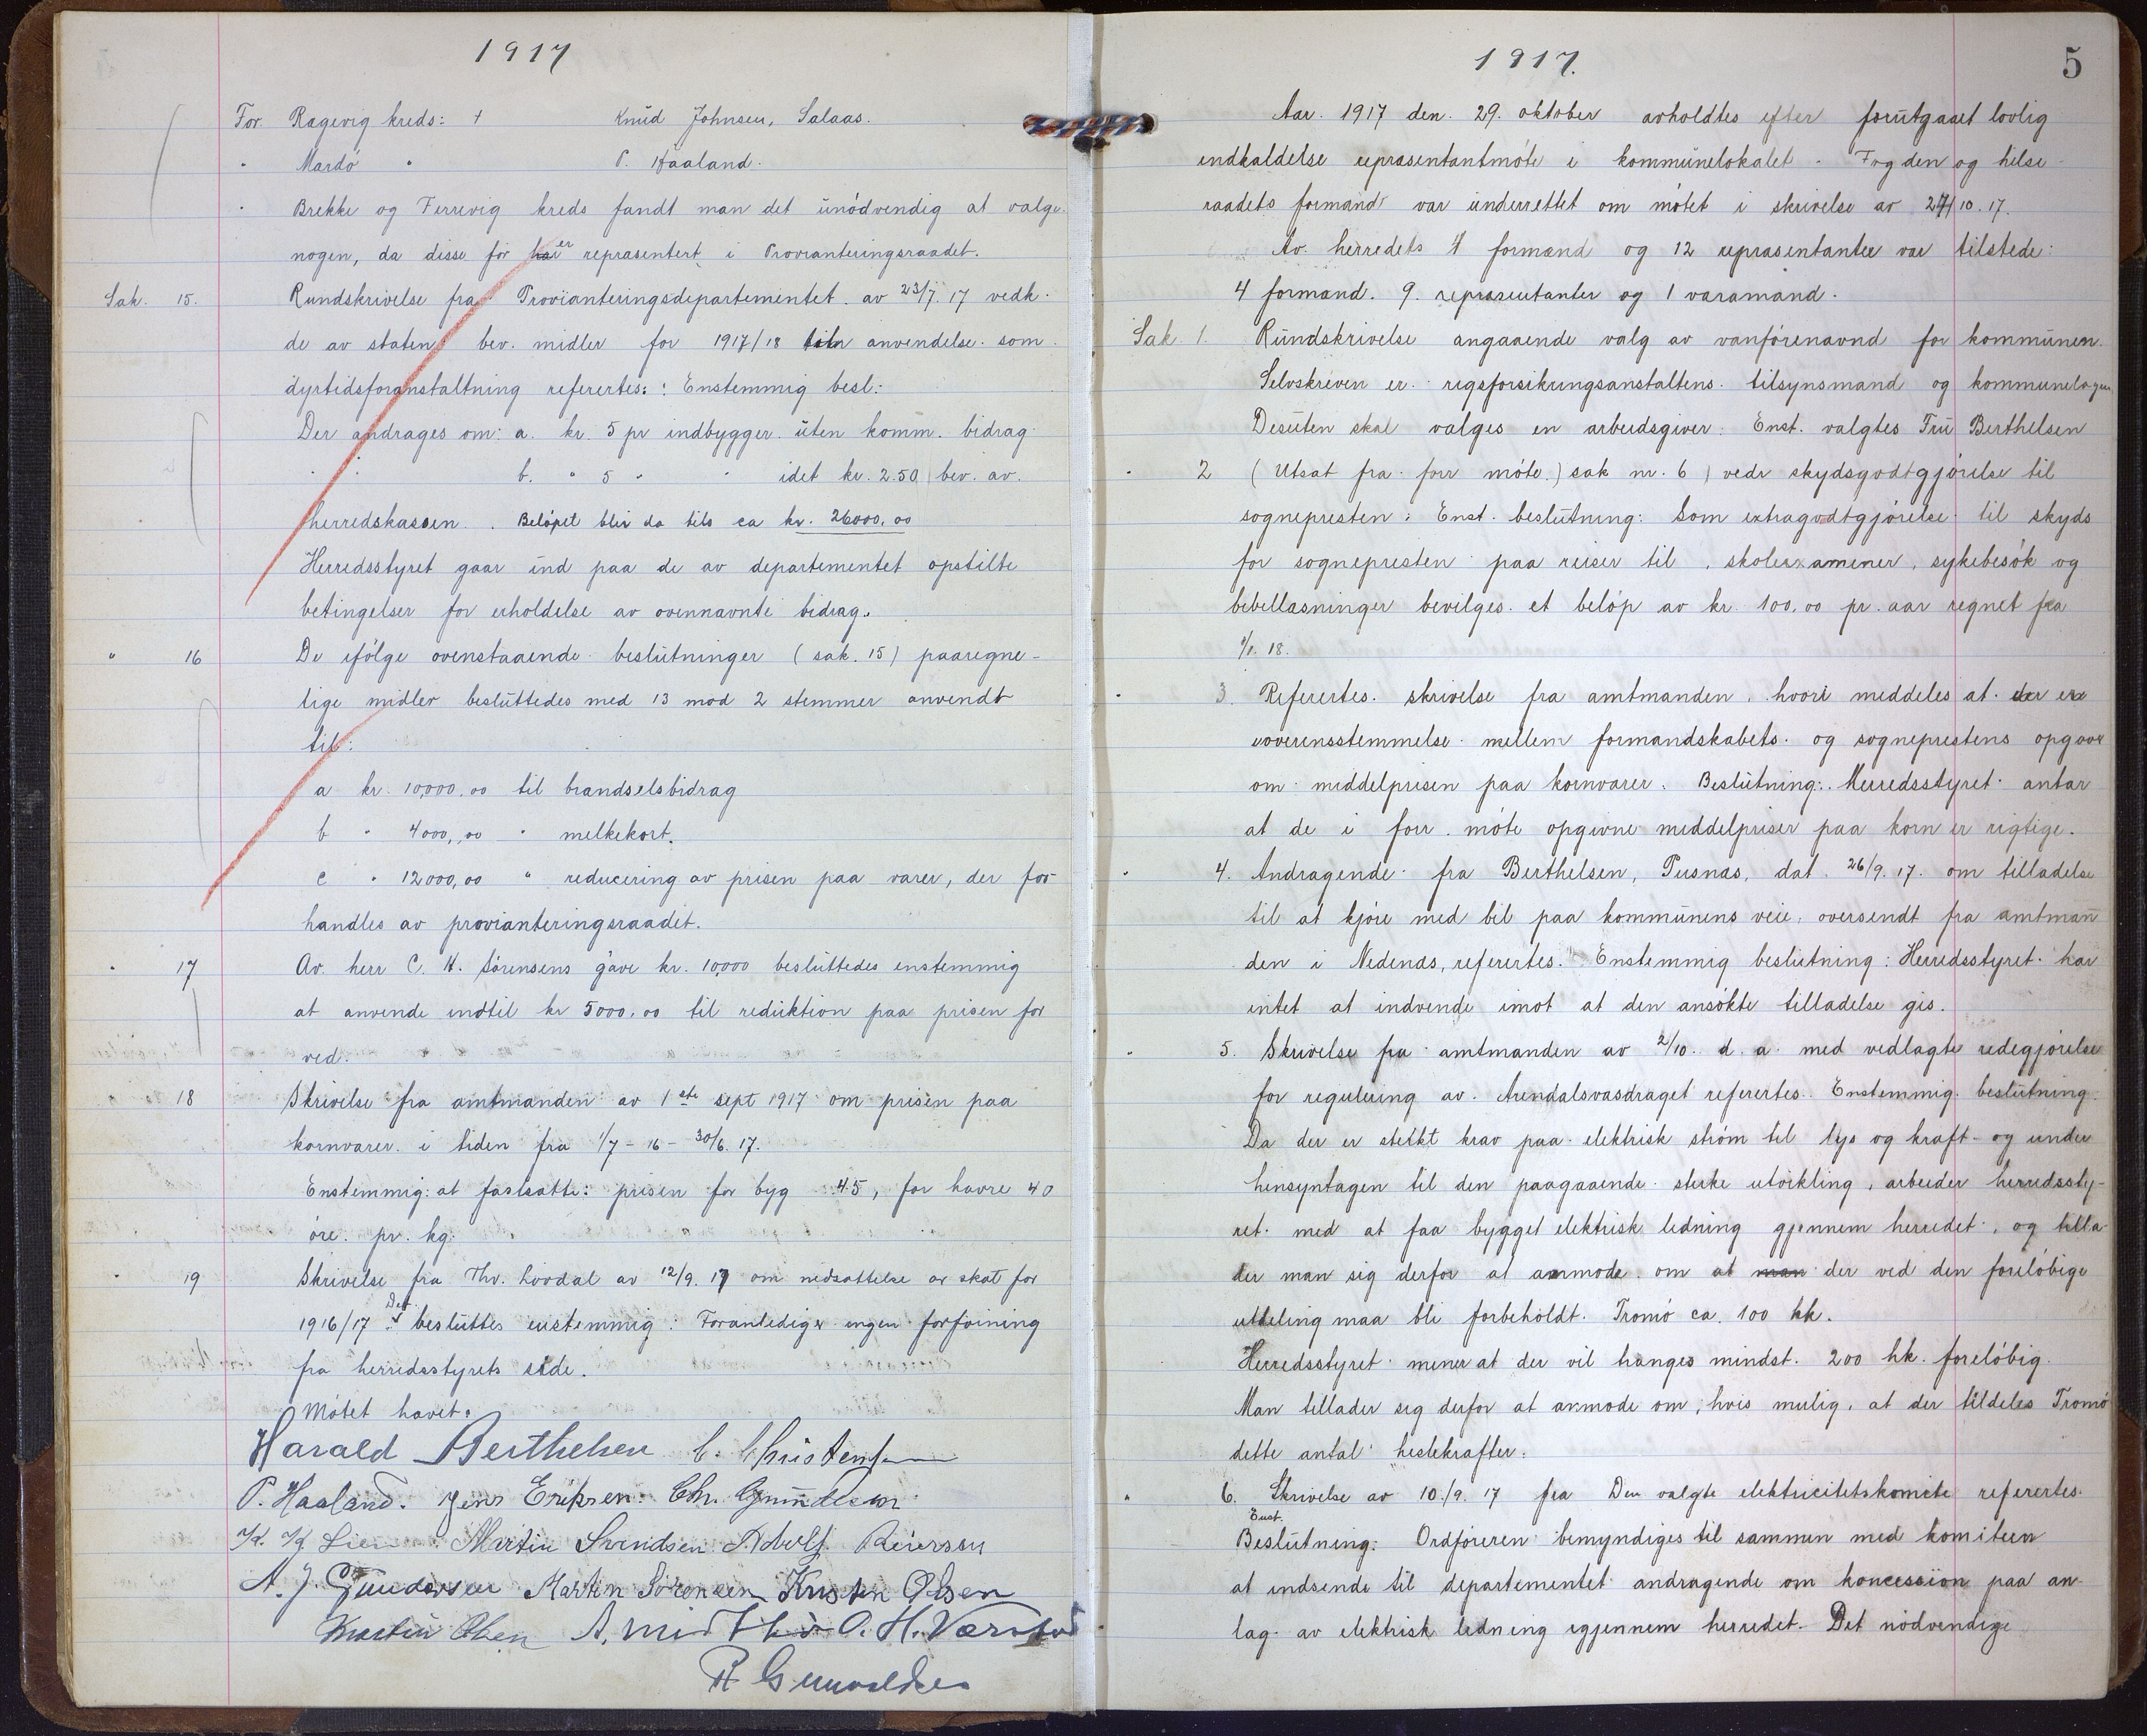 1917
For. Ragevig kreds: + Knud Johnsen, Salaas.
" Mardö " P. Haaland.
" Brekke og Færrevig kreds fandt man det unödvendig at vælge
nogen, da disse för har er repræsentert i Provianteringsraadet.
Sak. 15. Rundskrivelse fra Provianteringsdepartementet av 23/7. 17 vedk.
de av staten bev. midler for 1917/18 til anvendelse som
dyrtidsforanstaltning refertes: Enstemmig besl:
Der andrages om: a. kr. 5 pr indbygger uten komm. bidrag
" " b. " 5 " " idet kr. 2.50 bev. av.
herredskassen. Belöpet blir da tils ca kr. 26000,00
Herredsstyret gaar ind paa de av departementet opstilte
betingelser for erholdelse av ovennævnte bidrag.
" 16 De ifölge ovenstaaende beslutninger (sak. 15) paaregne-
lige midler besluttedes med 13 mod 2 stemmer anvendt
til:
a kr. 10,000,00 til brændselsbidrag
b " 4000,00 " melkekort.
c " 12000,00 " reducering av prisen paa varer, der for
handles av provianteringsraadet.
" 17 Av herr C. H. Sörensens gave kr. 10,000 besluttedes enstemmig
at anvende indtil kr 5000,00 til reduktion paa prisen for
ved.
" 18 Skrivelse fra amtmanden av 1ste sept 1917 om prisen paa
kornvarer i tiden fra 1/7 - 16 - 30/6. 17.
Enstemmig at fastsatte: prisen for byg 45, for havre 40
öre. pr. kg.
" 19 Skrivelse fra Thv. Lövdal av 12/9. 17 om nedsættelse av skat for
1916/17. Det besluttes enstemmig: Foranlediger ingen forföining
fra herredsstyrets side.
Mötet hævet.
Harald Berthelsen C. Christensen
P. Haaland. Jens Eriksen. Chr. Gundersen
K. K. Lien Martin Svendsen Adolf Reiersen
A. J. Gundersen Martin Sörensen Kristen Olsen
Martin Olsen A. O. H. Værstad
R Gunvaldsen
1917.
5
Aar 1917 den 29. oktober avholdtes efter forutgaaet lovlig
indkaldelse repræsentantmöte i kommunelokalet. Fogden og helse
raadets formand var underrettet om mötet i skrivelse av 24/10. 17.
Av herredets 4 formænd og 12 repræsentanter var tilstede:
4 formænd. 9. repræsentanter og 1 varamand.
Sak. 1. Rundskrivelse angaaende valg av vanförenævnd for kommunen.
Selvskreven er rigsforsikringsanstaltens tilsynsmand og kommunelægen
Desuten skal vælges en arbeidsgiver: Enst. valgtes Fru Berthelsen
" 2 (Utsat fra forr möte.) sak nr. 6) vedr skydsgodtgjörelse til
sognepresten: Enst. beslutning: Som extragodtgjörelse til skyds
for sognepresten paa reiser til skolexaminer, sykebesök og
bibellæsninger bevilges et belöp av kr. 100,00 pr. aar regnet fra
1/1. 18.
" 3. Referertes skrivelse fra amtmanden, hvori meddeles at der er
uoverensstemmelse mellem formandskabets og sogneprestens opgaver
om middelprisen paa kornvarer. Beslutning: Herredsstyret antar
at de i forr. möte opgivne middelpriser paa korn er rigtige.
" 4. Andragende fra Berthelsen, Pusnæs, dat. 26/9. 17. om tilladelse
til at kjöre med bil paa kommunens veie, oversendt fra amtman
den i Nedenæs, referertes. Enstemmig beslutning: Herredsstyret har
intet at indvende imot at den ansökte tilladelse gis.
" 5. Skrivelse fra amtmanden av 2/10. d. a. med vedlagte redegjörelse
for regulering av Arendalsvasdraget referertes. Enstemmig beslutning.
Da der er sterkt krav paa elektrisk ström til lys og kraft og under
hensyntagen til den paagaaende sterke utvikling, arbeider herredssty-
ret med at faa bygget elektrisk ledning gjennem herredet, og tilla
der man sig derfor at anmode om at man der ved den forelöbige
utdeling maa bli forbeholdt Tromö ca. 100 hk.
Herredsstyret mener at der vil trænges mindst 200 hk. forelöbig.
Man tillader sig derfor at anmode om, hvis mulig, at der tildeles Tromö
dette antal hestekræfter.
" 6. Skrivelse av 10./9. 17 fra Den valgte elektricitetskomite referertes.
Enst.
Beslutning: Ordföreren bemyndiges til sammen med komiteen
at indsende til departementet andragende om koncession paa an-
læg av elektrisk ledning igjennem herredet. Det nödvendige